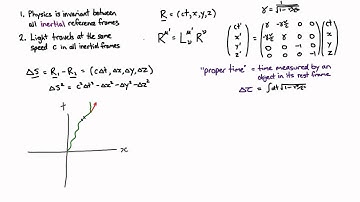 1. Physics is invariant between
all inertial reference frames
2. Light travels at the same
speed c in all inertial frames
R = (ct, x, y, z)
R^μ' = L^μ'_ν R^ν
γ = 1/√(1-v²/c²)
(ct' x' y' z') = (γ -γv/c 0 0, -γv/c γ 0 0, 0 0 -1 0, 0 0 0 -1) (ct x y z)
ΔS = R₁ - R₂ = (cΔt, Δx, Δy, Δz)
ΔS² = c²Δt² - Δx² - Δy² - Δz²
"proper time" = time measured by an
object in its rest frame
Δτ = ∫dt √(1-v²/c²)
t
x